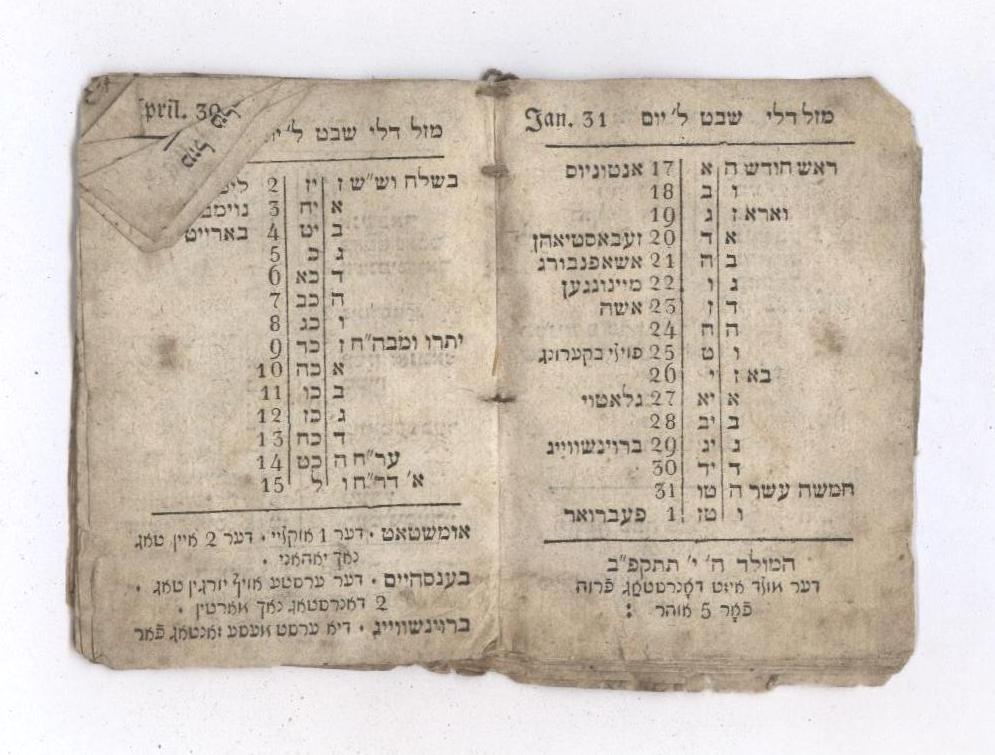 מזל דלי שבט ל׳ יום Jan. 31
ראש חודש ה א 17 אנטוניוס
ו ב 18
וארא ז ג 19
א ד 20 זעבאסטיאהן
ב ה 21 אשאפנבורג
ג ו 22 מיינונגען
ד ז 23 אשה
ה ח 24
ו ט 25
בא ז י 26
א יא 27 גלאטוי
ב יב 28
ג יג 29 ברוינשווייג
ד יד 30
חמשה עשר ה טו 31
ו טז 1 פעברואר
המולד ה׳ י׳ תתקפ״ב
דער מולד איזט דאָנרסטאָג פֿרוה
פֿאָר 5 אוהר :
מזל דלי שבט ל׳ pril. 30
בשלח וש״ש ז יז 2
א יח 3
ב יט 4 בארייט
ג כ 5
ד כא 6
ה כב 7
ו כג 8
יתרו ומבה״ח ז כד 9
א כה 10
ב כו 11
ג כז 12
ד כח 13
ער״ח ה כט 14
א׳ דר״ח ו ל 15
אומשטאט · דער 1 דער 2 איין טאג
נאך יאהאני ·
בענסהיים · דער ערסטע אויף יורגין טאג ·
2 דאנרסטאג נאך מארטין ·
ברוינשווייג · דיא ערסט מעסע זאנטאג פֿאר